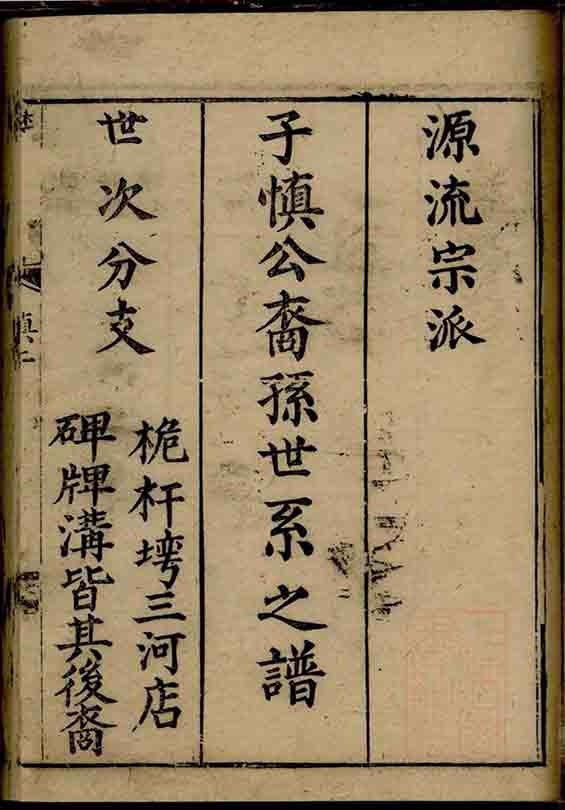 源流宗派
子慎公裔孫世系之譜
世次分支
桅杆塆三河店
碑牌溝皆其後裔